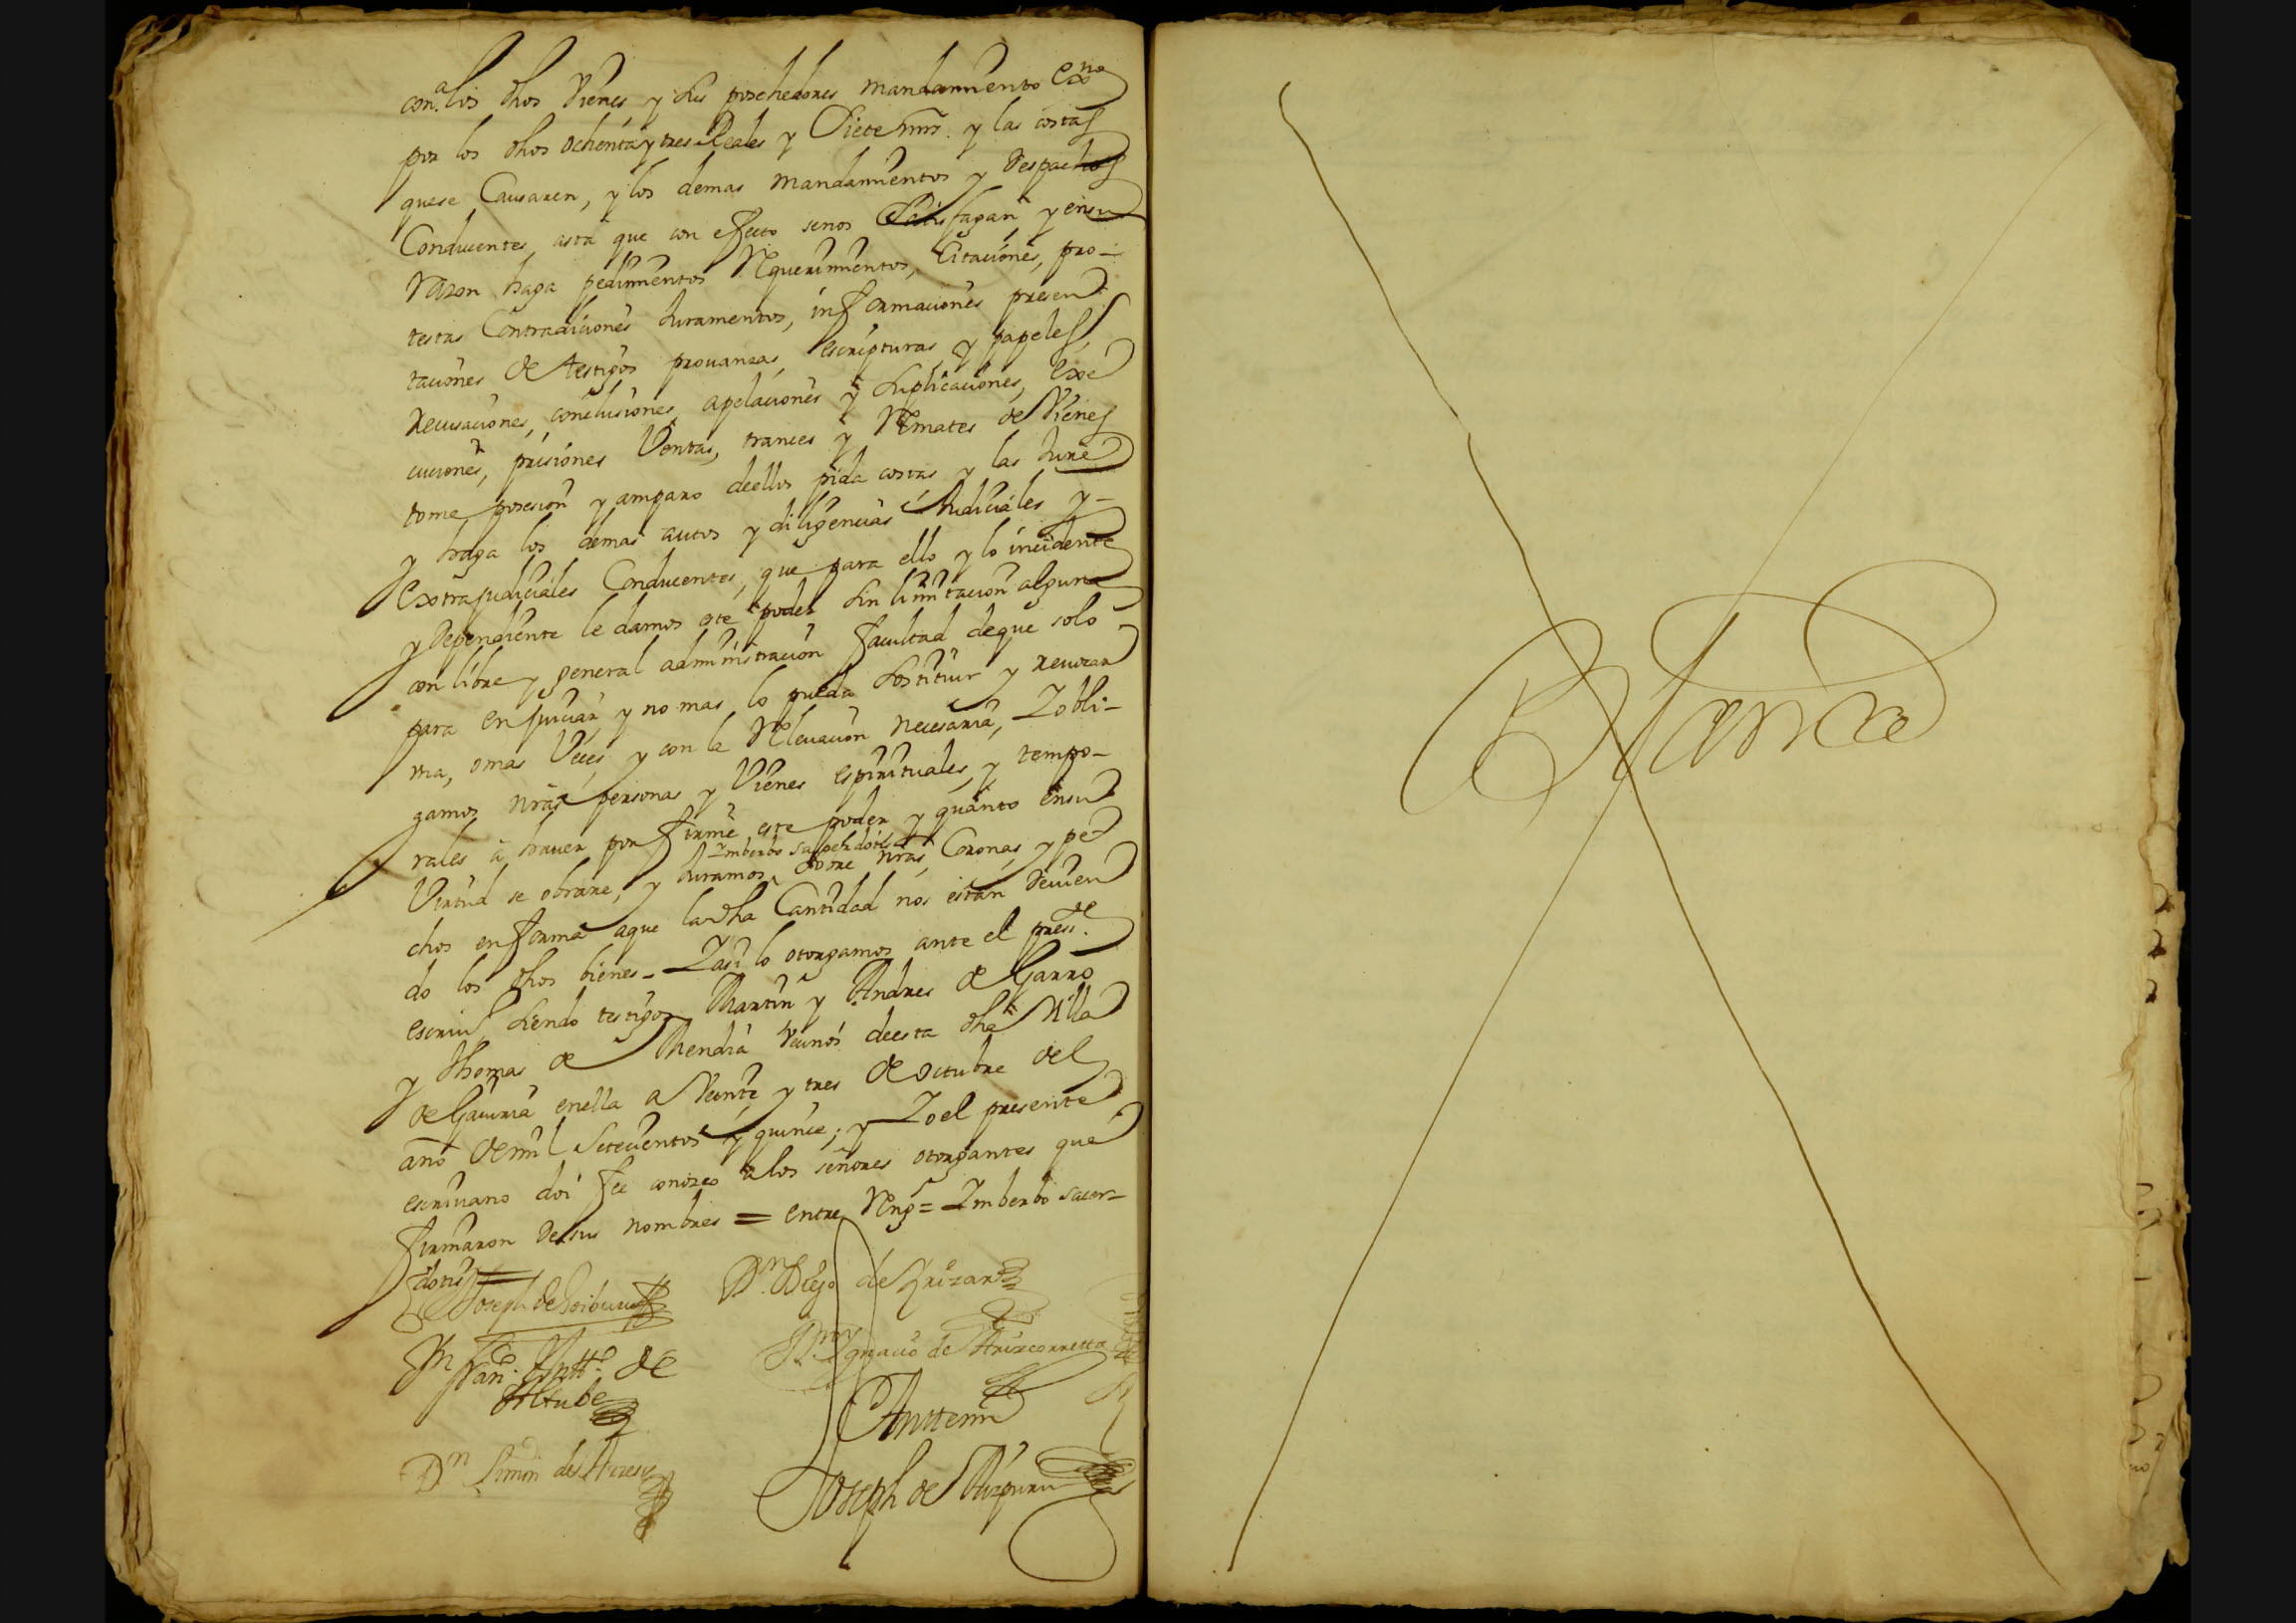 con.a los dhos Vienes y sus poschedores mandamiento exno
por los dhos ochenta y tres Reales y Siete mrs. y las costas
quese Causaren, y los demas mandamientos y despachos
Conducentes, asta que con efecto senos Satisfagan, y ensu
Razon haga pedimientos Requerimientos, Citaciones, pro-
testas Contradiciones Juramentos, informaciones presen
taciones de testigos provanzas, escripturas, y papeles,
Recusaciones, conclusiones, apelaciones y suplicaciones, exe
cuciones, prisiones Ventas, trances y Remates de Vienes
tome posesion y amparo deellos pida costas y las Jure
y haga los demas autos y diligencias Judiciales y-
Extrajudiciales Conducentes, que para ello y lo incidente
y dependiente le damos este poder sin limitacion alguna
con libre y general administracion facultad deque solo
para enjuiciar y no mas lo pueda sostituir y revocar
una, omas Veces, y con la Relevacion necesaria, Yobli-
gamos nras personas y Vienes espirituales, y tempo-
rales à haver por firme este poder y quanto ensu
Ymberbo sacerdotis
Virtud se obrare, y Juramos sobre nras Coronas, y pe
chos en forma aque la dha Cantidad nos estan deuien
do los dhos bienes- Yasi lo otorgamos ante el preste.
escriu.o siendo testigos Martin y Andres de Garro
y Thomas de Mendia vecinos deesta dha Villa
de Gauiria enella a Veinte y tres de octubre del
año demil Setecientos y quince; y Yo el presente
escriuano doi fee conozco alos señores otorgantes que
firmaron desus nombres = entre Reng.s = Ymberbo sacer-
dotis =
Joseph de
Dn. Diego de Yrizar
de
Altube
Dn. Ygnacio de Arizcorreta
Antemi
Dn Simon de
Joseph de Aizpuru
Blanco